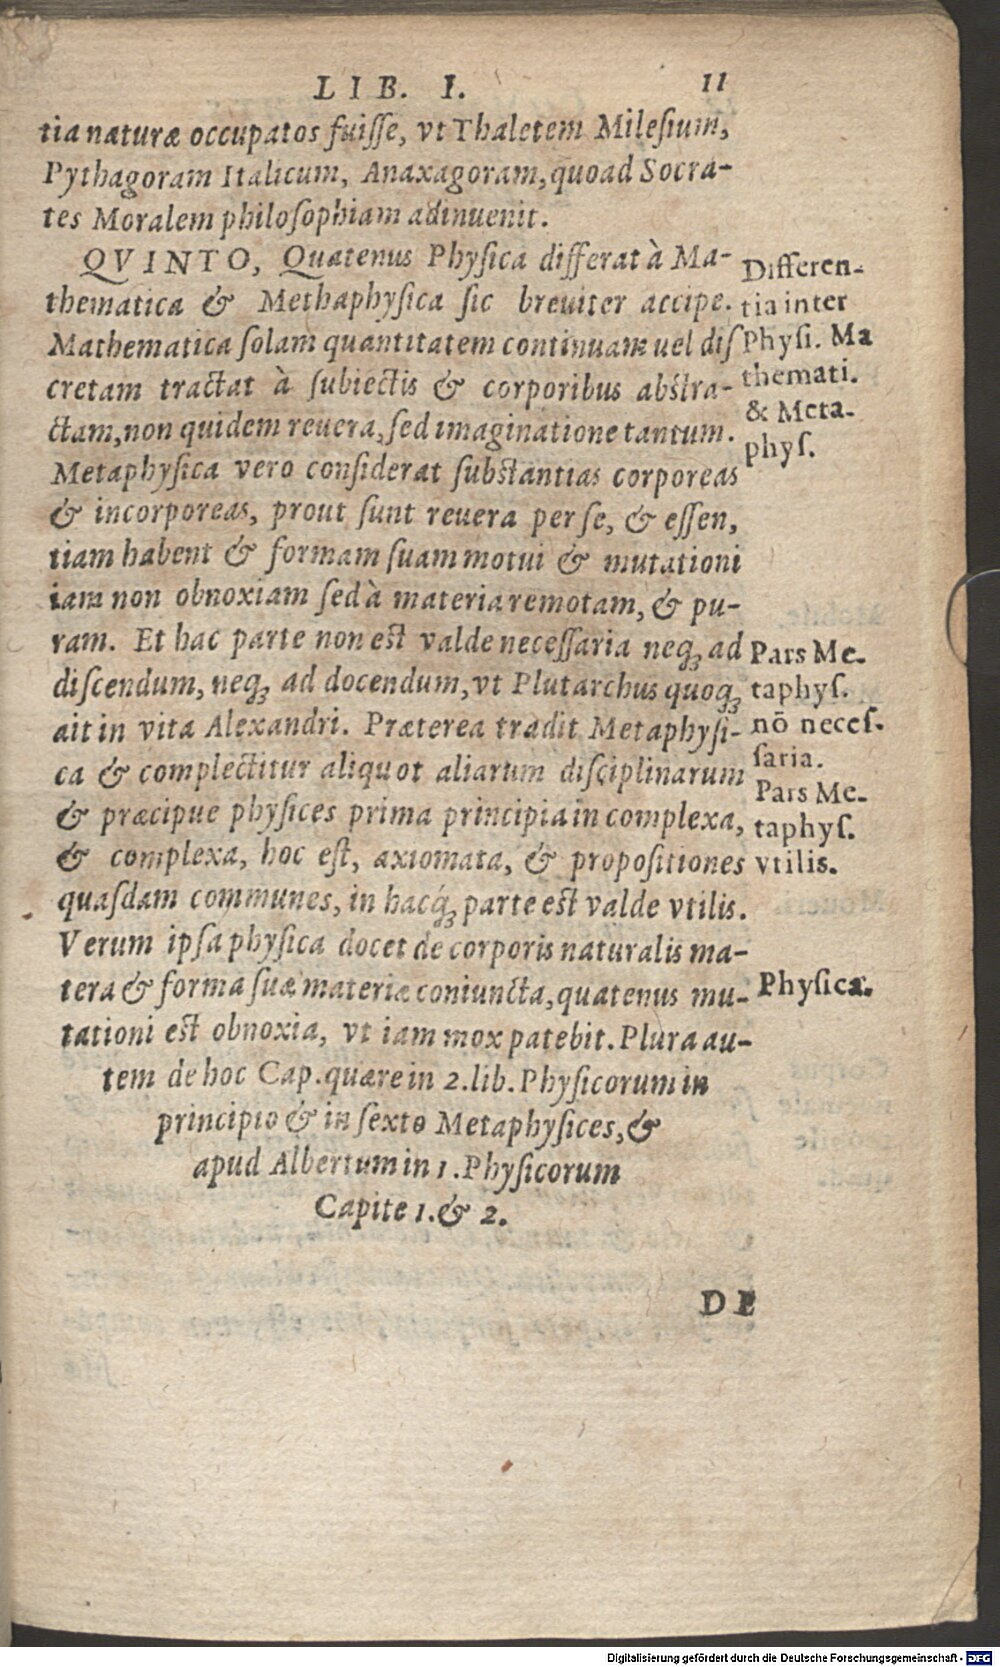 LIB. I. 11
tia naturæ occupatos fuiſſe, vt Thaletem Mileſium,
Pythagoram Italicum, Anaxagoram, quoad Socra-
tes Moralem philoſophiam adinuenit.
QVINTO, Quatenus Phyſica differat à Ma-
thematica & Methaphyſica ſic breuiter accipe.
Mathematica ſolam quantitatem continuam uel diſ
cretam tractat à ſubiectis & corporibus abſtra-
ctam, non quidem reuera, ſed imaginatione tantum.
Metaphyſica vero conſiderat ſubſtantias corporeas
& incorporeas, prout ſunt reuera per ſe, & eſſen,
tiam habent & formam ſuam motui & mutationi
iam non obnoxiam ſed à materia remotam, & pu-
ram. Et hac parte non eſt valde neceſſaria neqꝫ ad
diſcendum, neqꝫ ad docendum, vt Plutarchus quoqꝫ
ait in vita Alexandri. Præterea tradit Metaphyſi-
ca & complectitur aliquot aliarum diſciplinarum
& præcipue phyſices prima principia in complexa,
& complexa, hoc eſt, axiomata, & propoſitiones
quaſdam communes, in hacq́ꝫ parte eſt valde vtilis.
Verum ipſa phyſica docet de corporis naturalis ma-
tera & forma ſuæ materiæ coniuncta, quatenus mu-
tationi eſt obnoxia, vt iam mox patebit. Plura au-
tem de hoc Cap. quære in 2. lib. Phyſicorum in
principio & in ſexto Metaphyſices, &
apud Albertum in 1. Phyſicorum
Capite 1. & 2.
Differen-
tia inter
Phyſi. Ma
themati.
& Meta-
phyſ.
Pars Me-
taphyſ.
nō neceſ-
ſaria.
Pars Me-
taphyſ.
vtilis.
Phyſica.
DE
Digitalisierung gefördert durch die Deutsche Forschungsgemeinschaft - DFG